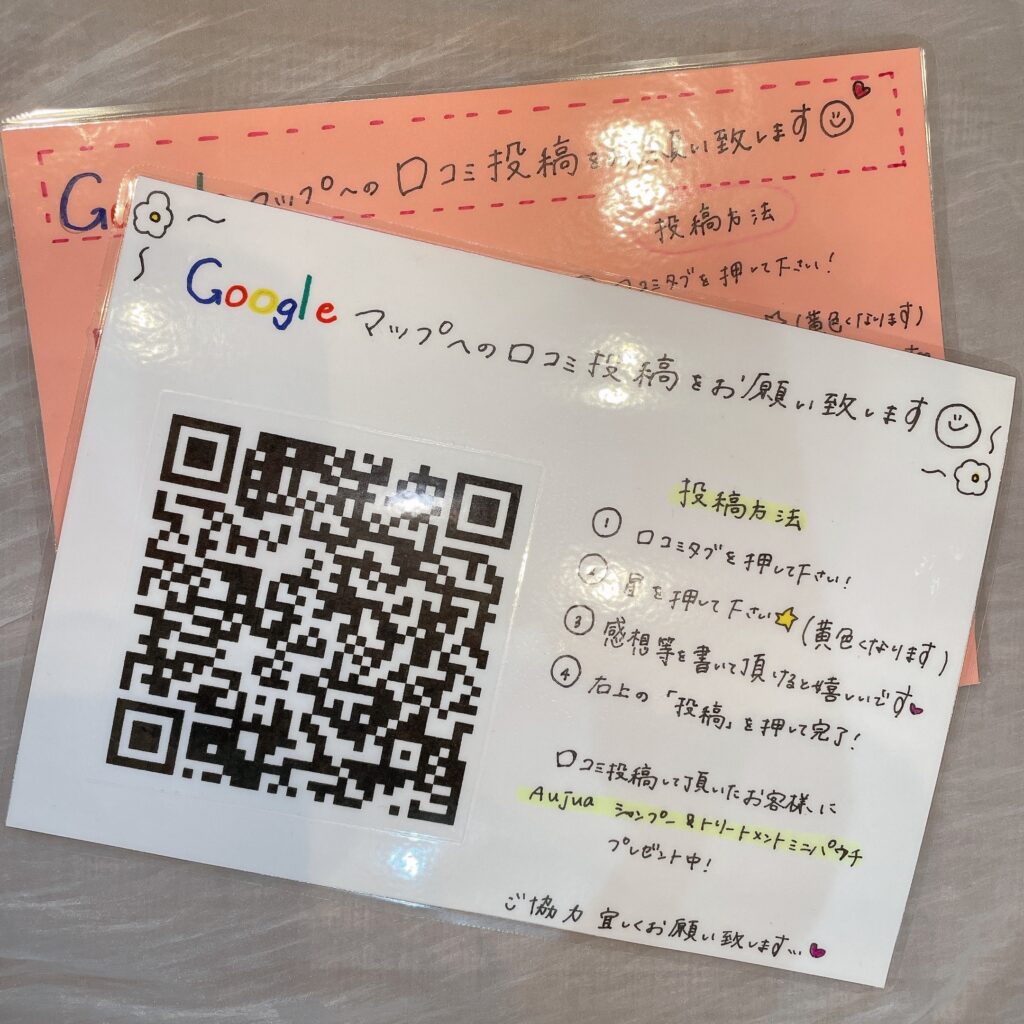 Go le マップへの口コミ投稿を 願い致します
投稿方法
口コミタブを押して下さい!
(黄色くなります)
Google マップへの口コミ投稿をお願い致します
投稿方法
① 口コミタブを押して下さい!
② 星を押して下さい (黄色くなります)
③ 感想等を書いて頂けると嬉しいです
④ 右上の「投稿」を押して完了!
口コミ投稿して頂いたお客様に
Aujua シャンプー&トリートメントミニパウチ
プレゼント中!
ご協力 宜しくお願い致します...